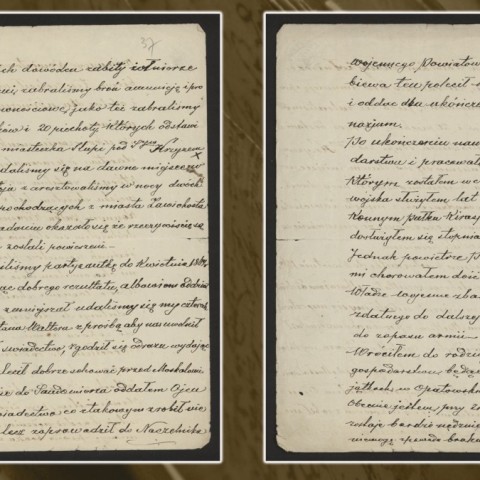 37
ich dowódca zabity żołnierze
zabraliśmy broń amunicję i pro
wnościowe, jako też zabraliśmy
ków i 20 piechoty, których odstawi
miasteczka Słupi pod Styem Krzyżem
daliśmy się na dawne miejsce
zaaresztowaliśmy w nocy dwóch
pochodzących z miasta Zawichosta
okazało się że rzeczywiście są
zostali powieszeni.
liśmy partyzantkę do Kwietnia 1864
dobrego rezultatu, a
zmniejszał udaliśmy się my czterej
tana Waltera z prośbą aby nas uwolnił
świadectwo, zgodził się odrazu wydając
dobrze schować przed Moskalami,
do Sandomierza oddałem Ojcu
świadectwo, co z takowym zrobił nie
lecz zaprowadził do Naczelnika
wojennego Powiatow
ten polecił
i oddać dla ukończe
nazjum.
Po ukończeniu nau
darstwu i pracowa
którym zostałem w
wojska służyłem lat
Konnym pułku Kiras
dosłużyłem się stopnia
Jednak powietrze
mi chorowałem dość
Władze wojenne zba
zdatnego do dalszej
do zapasu armii
Wróciłem do rodzi
gospodarstwem będąc
jątkach w Opatowsk
Obecnie jestem przy
staję bardzo nędznie
niemogę z powodu braku